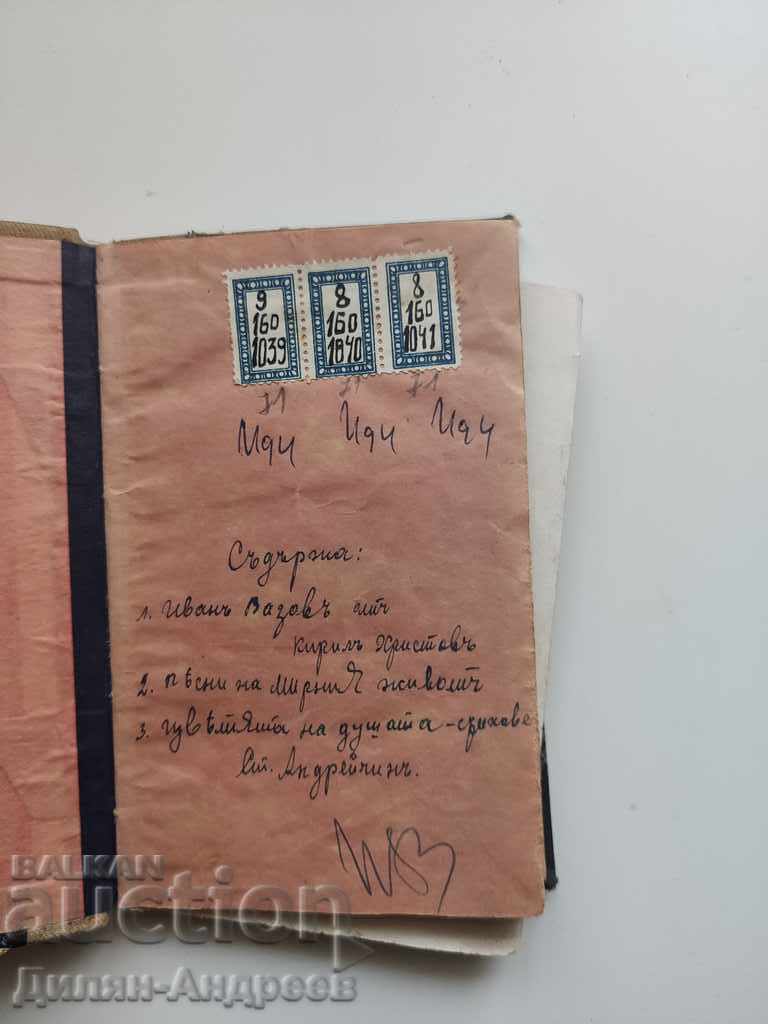 9 8 8
160 160 160
1039 1040 1041
71 71 71
Съдържа:
1. Иванъ Вазовъ отъ
Кирилъ Христовъ
2. Пѣсни на Мирния животъ
3. Цвѣтята на душата - стихове
Ст. Андрейчинъ.
BALKAN
auction
Дилян-Андреев